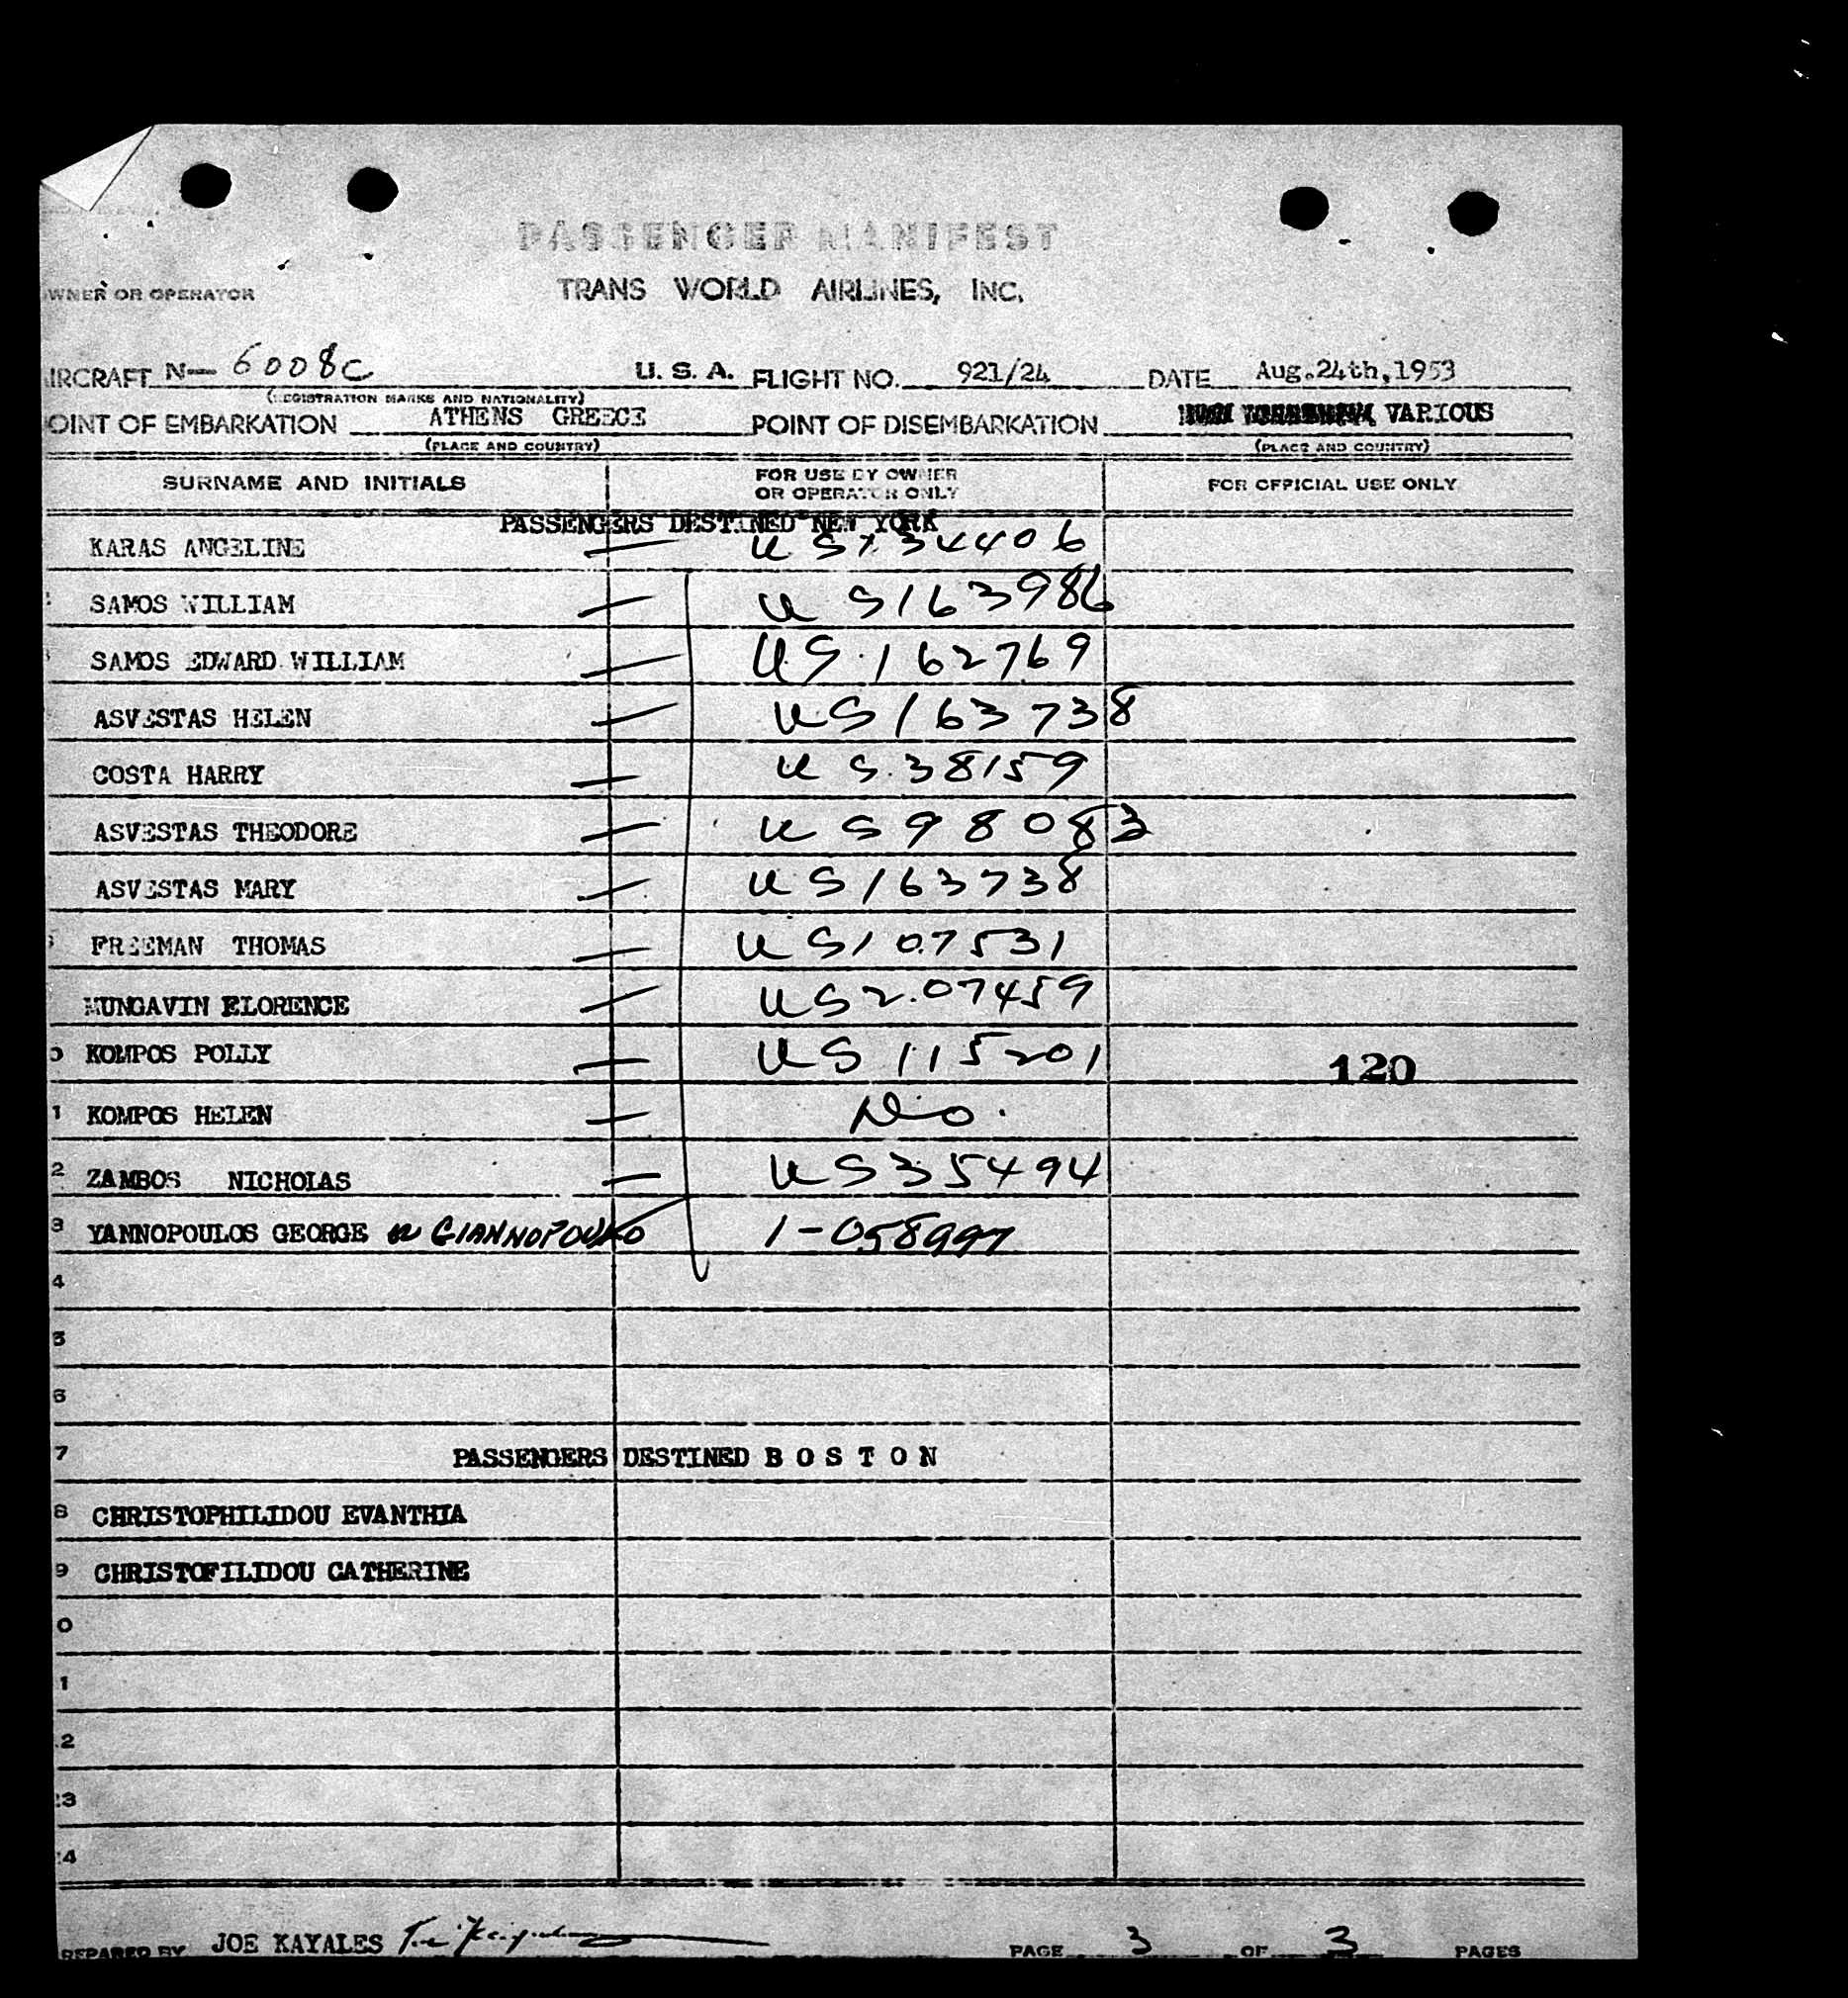 PASSENGER MANIFEST
WNER OR OPERATOR TRANS WORLD AIRLINES, INC.
IRCRAFT N— 6008C U. S. A. FLIGHT NO. 921/24 DATE Aug.24th,1953
(REGISTRATION MARKS AND NATIONALITY)
OINT OF EMBARKATION ATHENS GREECE POINT OF DISEMBARKATION VARIOUS
(PLACE AND COUNTRY) (PLACE AND COUNTRY)
SURNAME AND INITIALS FOR USE BY OWNER OR OPERATOR ONLY FOR OFFICIAL USE ONLY
PASSENGERS DESTINED NEW YORK
KARAS ANGELINE — US134406
SAMOS WILLIAM — US163986
SAMOS EDWARD WILLIAM — US162769
ASVESTAS HELEN — US163738
COSTA HARRY — US38159
ASVESTAS THEODORE — US98083
ASVESTAS MARY — US163738
FREEMAN THOMAS — US107531
MUNGAVIN FLORENCE — US207459
0 KOMPOS POLLY — US115201 120
1 KOMPOS HELEN — No.
2 ZAMBOS NICHOLAS — US35494
3 YANNOPOULOS GEORGE or GIANNOPOULO 1-058997
4
5
6
7 PASSENGERS DESTINED B O S T O N
8 CHRISTOPHILIDOU EVANTHIA
9 CHRISTOFILIDOU CATHERINE
0
1
2
3
4
REPARED BY JOE KAYALES PAGE 3 OF 3 PAGES